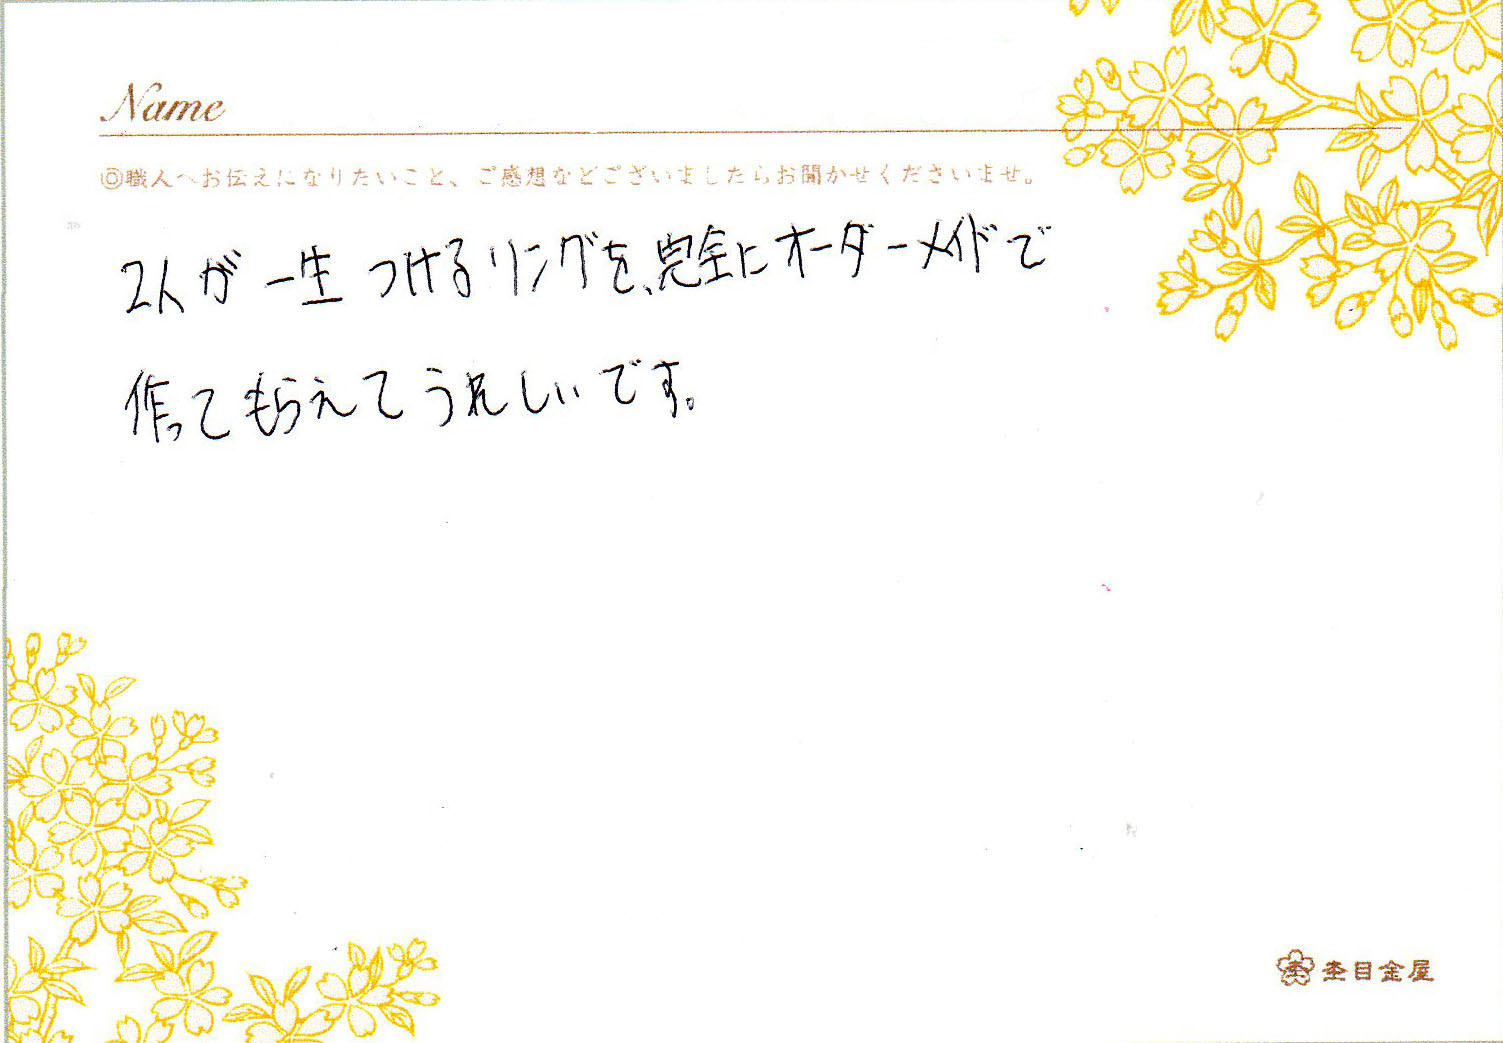 Name
◎職人へお伝えになりたいこと、ご感想などございましたらお聞かせくださいませ。
2人が一生つけるリングを、完全にオーダーメイドで
作ってもらえてうれしいです。
杢目金屋